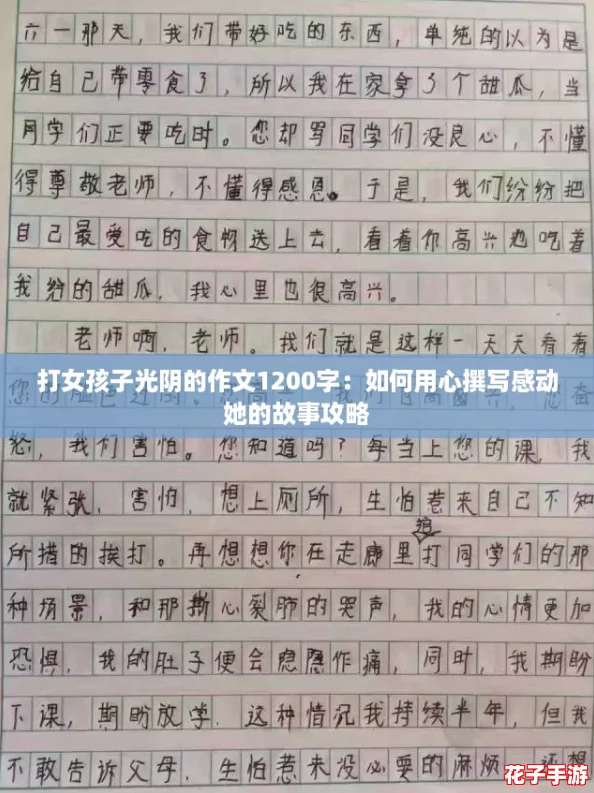 六一那天，我们带好吃的东西，单纯的以为是
给自己带零食了，所以我在家拿了个甜瓜，当
同学们正要吃时。您却骂同学们没良心，不懂
得尊敬老师，不懂得感恩。于是，我们纷纷把
自己最爱吃的食物送上去，看着你高兴地吃着
我给的甜瓜，我心里也很高兴。
老师啊，老师。我们就是这样一天天看着
打女孩子光阴的作文1200字：如何用心撰写感动
她的故事攻略
怒，我们害怕。您知道吗？每当上您的课，我
就紧张，害怕，想上厕所，生怕惹来自己不知
所措的挨打。再想想你在走廊里追打同学们的那
种场景，和那撕心裂肺的哭声，我的心情更加
恐惧，我的肚子便会隐隐作痛，同时，我期盼
下课，期盼放学。这种情况我持续半年，但我
不敢告诉父母，生怕惹来没必要的麻烦。还想
花子手游